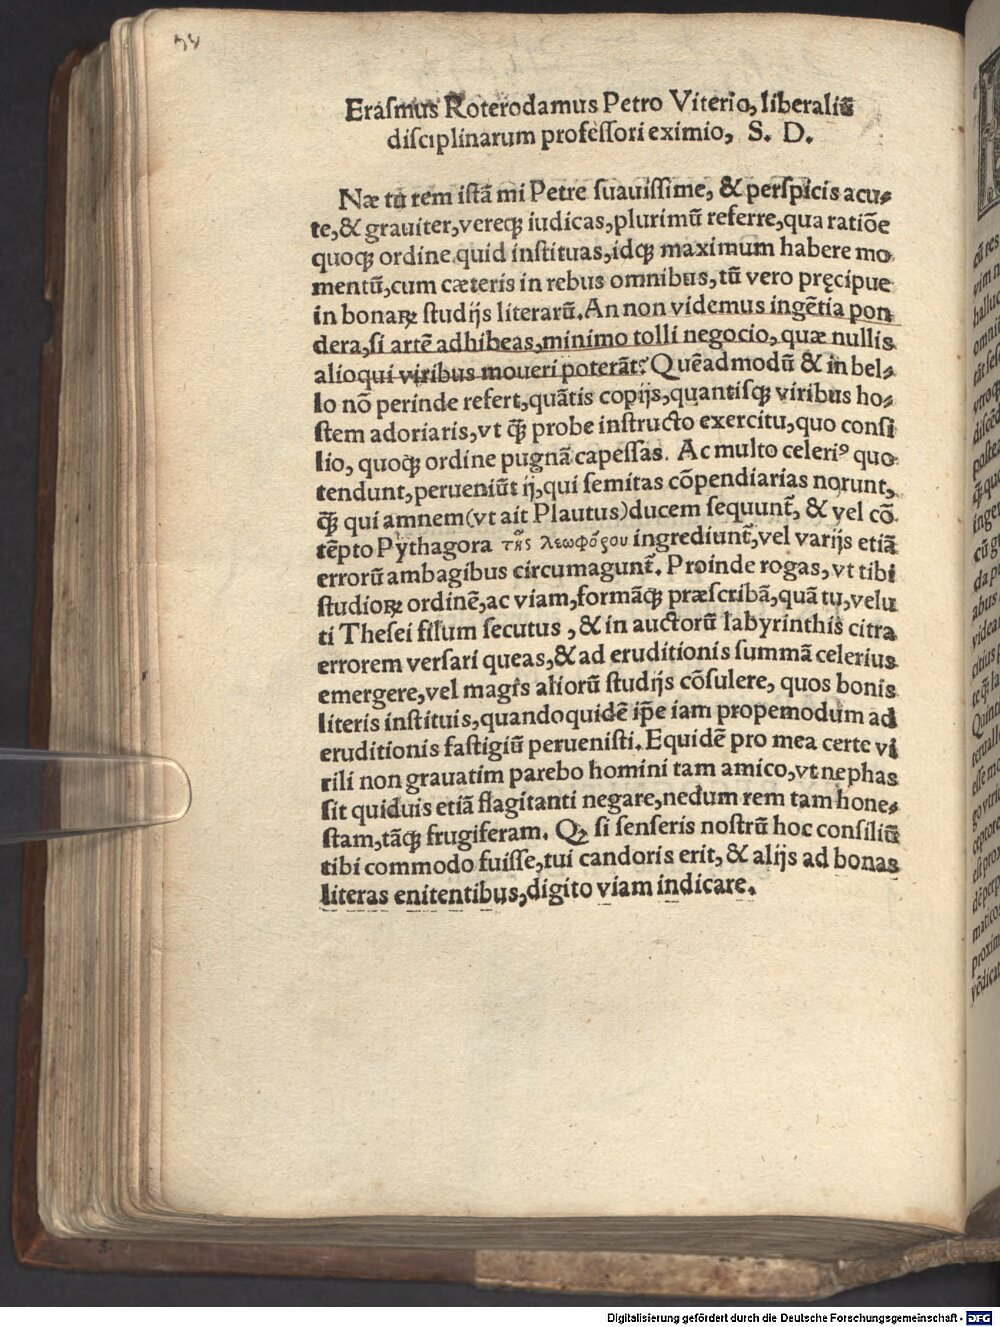 Eraſmus Roterodamus Petro Viterio, liberaliũ
diſciplinarum profeſſori eximio, S. D.
Næ tu rem iſtã mi Petre ſuauiſſime, & perſpicis acu⸗
te, & grauiter, vereq̃ iudicas, plurimũ referre, qua ratiõe
quoq̃ ordine quid inſtituas, idq̃ maximum habere mo
mentũ, cum cæteris in rebus omnibus, tũ vero pręcipue
in bonaꝝ ſtudijs literarũ. An non videmus ingẽtia pon
dera, ſi artẽ adhibeas, minimo tolli negocio, quæ nullis
alioqui viribus moueri poterãt? Quẽadmodũ & in bel⸗
lo nõ perinde refert, quãtis copijs, quantiſq̃ viribus ho⸗
ſtem adoriaris, vt q̃ probe inſtructo exercitu, quo conſi
lio, quoq̃ ordine pugnã capeſſas. Ac multo celeriꝰ quo
tendunt, perueniũt ij, qui ſemitas cõpendiarias norunt,
q̃ qui amnem (vt ait Plautus) ducem ſequunt̃, & vel cõ
tẽpto Pythagora τῆς λεωφόρου ingrediunt̃, vel varijs etiã
errorũ ambagibus circumagunt̃. Proinde rogas, vt tibi
ſtudioꝝ ordinẽ, ac viam, formãq̃ præſcribã, quã tu, velu
ti Theſei filum ſecutus, & in auctorũ labyrinthis citra
errorem verſari queas, & ad eruditionis ſummã celerius
emergere, vel magis aliorũ ſtudijs cõſulere, quos bonis
literis inſtituis, quandoquidẽ ip̃e iam propemodum ad
eruditionis faſtigiũ perueniſti. Equidẽ pro mea certe vi
rili non grauatim parebo homini tam amico, vt nephas
ſit quiduis etiã flagitanti negare, nedum rem tam hone⸗
ſtam, tãq̃ frugiferam. Qꝫ ſi ſenſeris noſtrũ hoc conſiliũ
tibi commodo fuiſſe, tui candoris erit, & alijs ad bonas
literas enitentibus, digito viam indicare.
Digitalisierung gefördert durch die Deutsche Forschungsgemeinschaft - DFG